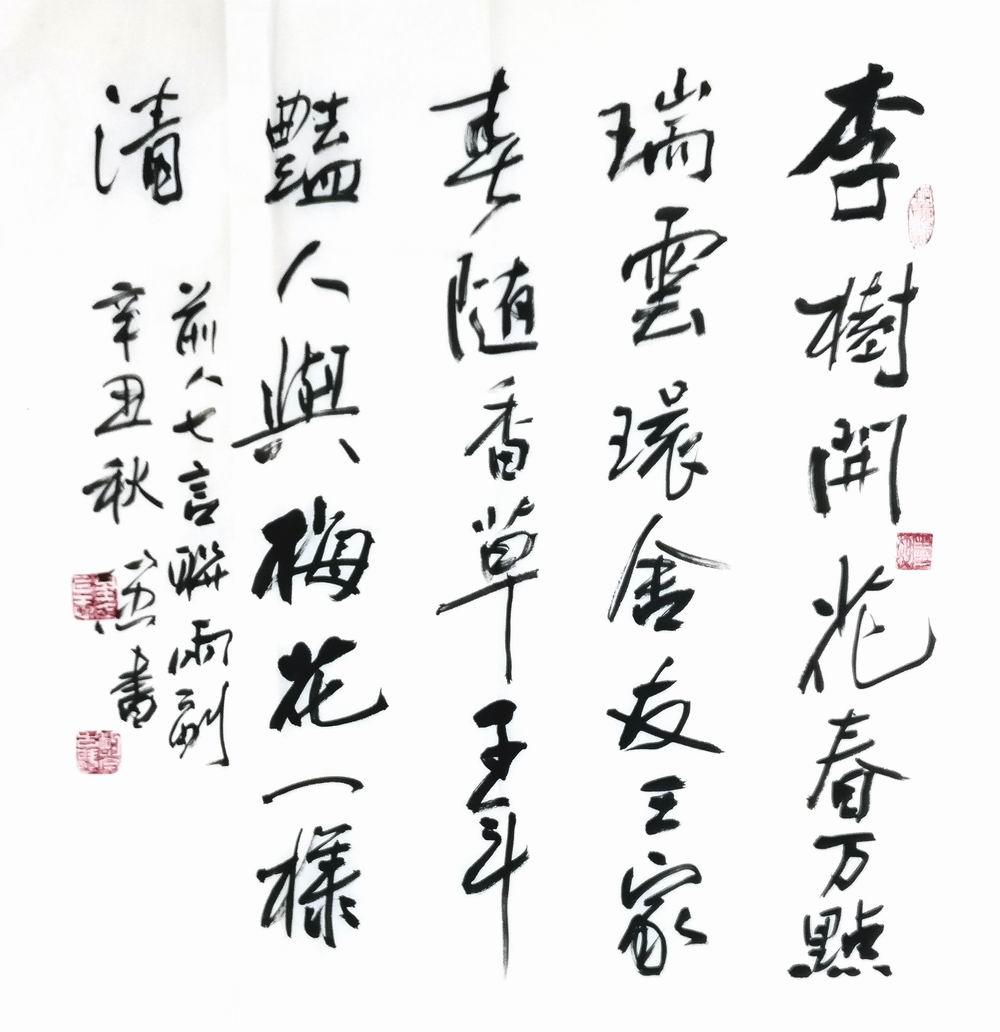 李樹開花春万點
瑞雲環舍友三家
春随香草千年
豔人與梅花一樣
清
前人七言聯兩副
辛丑秋書